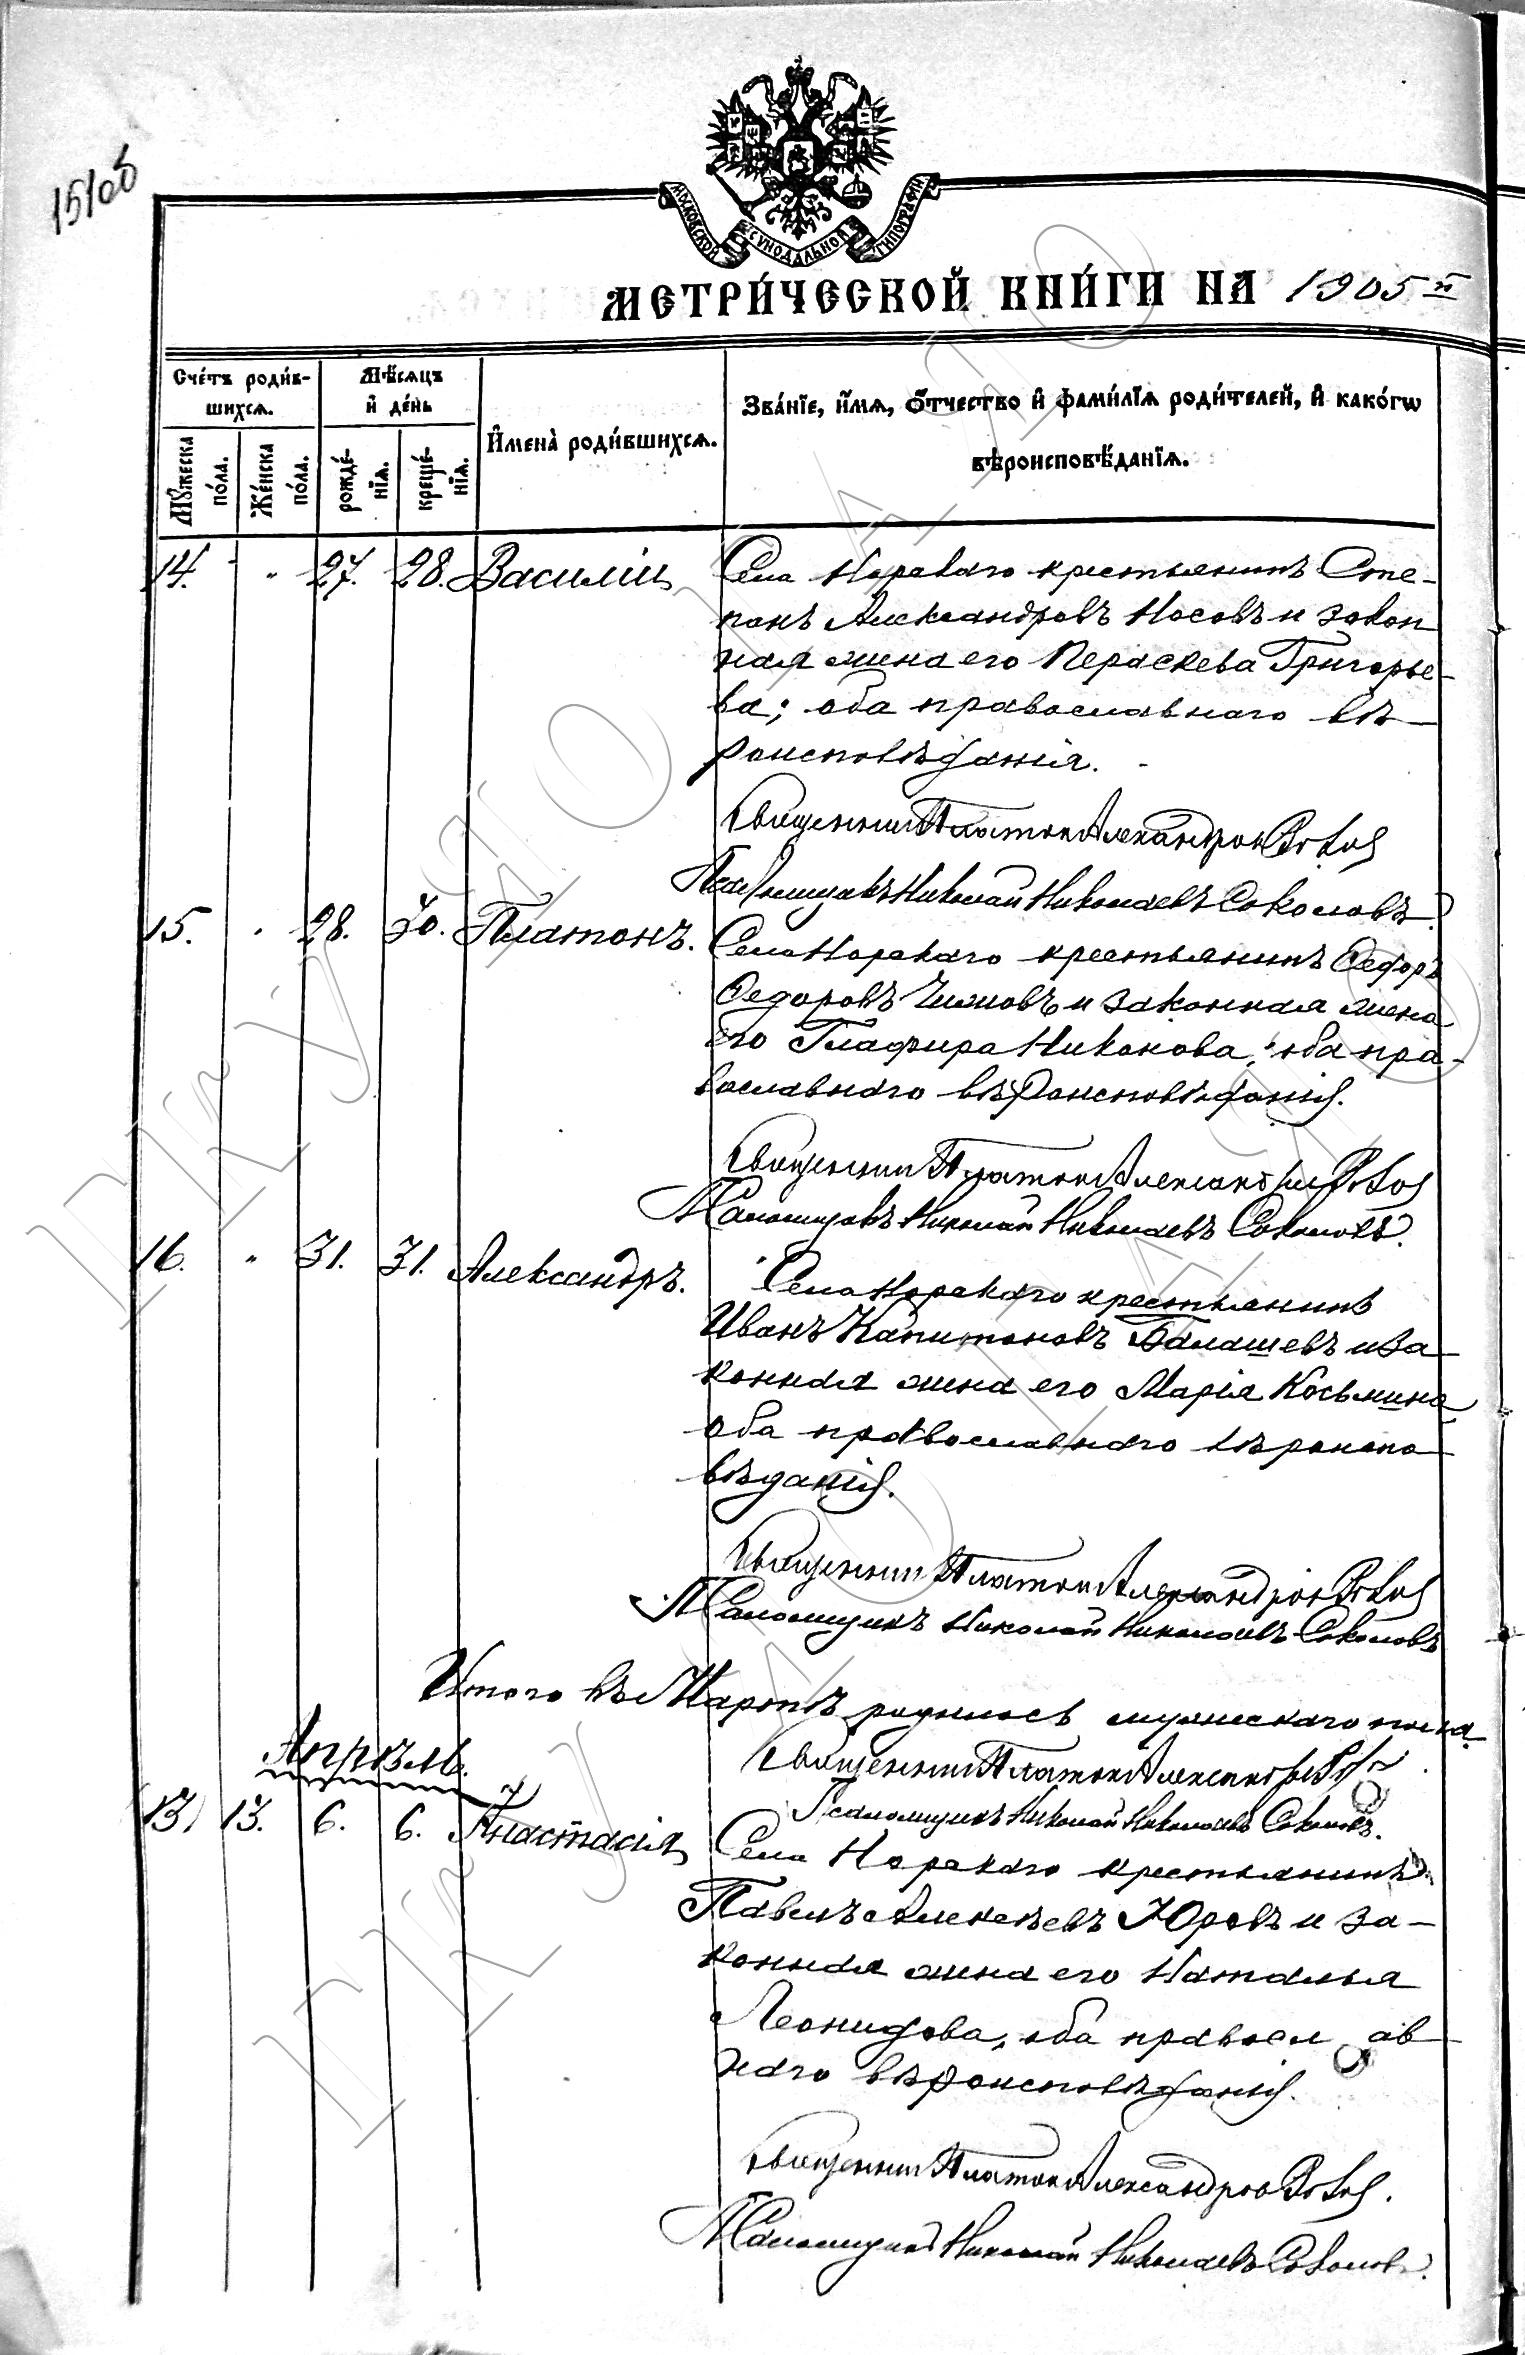 МОСКОВСКОЙ СѴНОДАЛЬНОЙ ТИПОГРАФІИ
МЕТРИ́ЧЕСКОЙ КНИ́ГИ НА 1905 й
Сче́тъ роди́в-
шихсѧ.
Мѣ́сѧцъ
и҆ де́нь
И҆мена̀ роди́вшихсѧ.
Зва́нїе, и҆́мѧ, ѻ҆́тчество и҆ фами́лїѧ роди́телей, и҆ како́гѡ
вѣроисповѣ́данїѧ.
Мꙋ́жеска
по́ла.
Же́нска
по́ла.
рожде́-
нїѧ.
креще́-
нїѧ.
14. " 27. 28. Василій
Села Норскаго крестьянинъ Сте-
панъ Александровъ Носовъ и закон
ная жена его Пераскева Григорье-
ва; оба православнаго вѣ-
роисповѣданія.
Священникъ Платонъ Александровъ
Псаломщикъ Николай Николаевъ Соколовъ
15. " 28. 30. Платонъ.
Села Норскаго крестьянинъ Ѳедоръ
Ѳедоровъ и законная жена
его Глафира Никонова; оба пра-
вославнаго вѣроисповѣданія.
Священникъ Платонъ Александровъ
Псаломщикъ Николай Николаевъ Соколовъ.
16. " 31. 31. Александръ.
Села Норскаго крестьянинъ
Иванъ Капитоновъ Балашевъ и за-
конная жена его Марія Косьмина
оба православнаго вѣроиспо-
вѣданія.
Священникъ Платонъ Александровъ
Псаломщикъ Николай Николаевъ Соколовъ
Итого въ Мартѣ родилось мужескаго пола
Священникъ Платонъ Александровъ
Апрѣль.
Псаломщикъ Николай Николаевъ Соколовъ.
13. 6. 6. Анастасія
Села Норскаго крестьянинъ
Павелъ Алексѣевъ Юровъ и за-
конная жена его Наталья
Леонидова, оба правосл ав-
наго вѣроисповѣданія.
Священникъ Платонъ Александровъ
Псаломщикъ Николай Николаевъ Соколовъ.